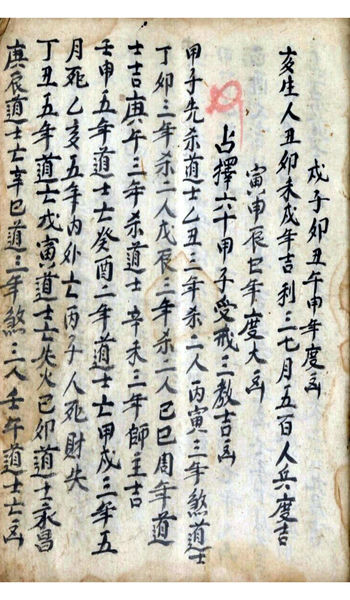 戌子卯丑午申年度凶
亥生人丑卯未戌年吉利三七月五百人兵度吉
寅申辰巳年度大凶
占擇六十甲子受戒三教吉凶
甲子先杀道士乙丑三年杀二人丙寅三年煞道士
丁卯三年杀二人戊辰三年杀二人己巳周年道
士吉庚午三年杀道士辛未三年師主吉
壬申五年道士亡癸酉二年道士亡甲戌三年五
月死乙亥五年内外亡丙子人死財失
丁丑五年道士戊寅道士亡失火己卯道士永昌
庚辰道士亡辛巳道三年煞三人壬午道士亡凶